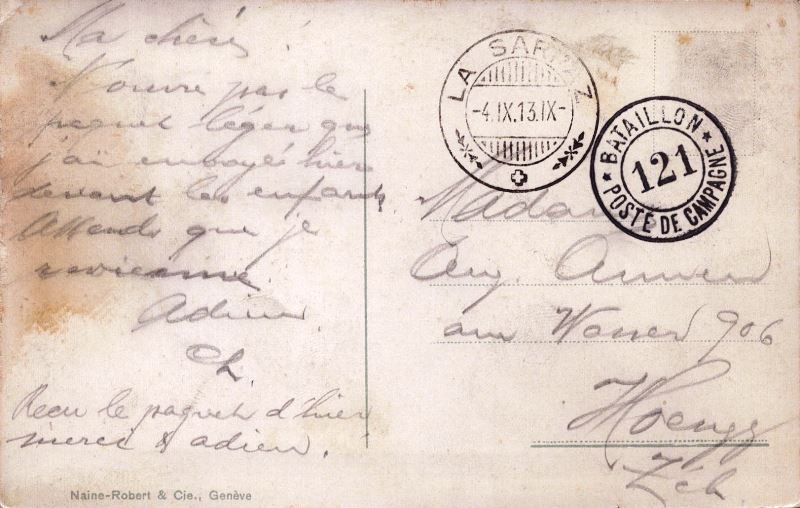 Ma chérie!
N'ouvre pas le
paquet léger que
j'ai envoyé hier
devant les enfants
Attends que je
revienne.
Adieu.
Ch.
Recu le paquet d'hier
merci & adieu.
Naine-Robert & Cie., Genève
LA SARRAZ
-4.IX.13.IX-
BATAILLON
121
POSTE DE CAMPAGNE
Madame
Aug.
am Wasser 906
Hoengg
Zch.